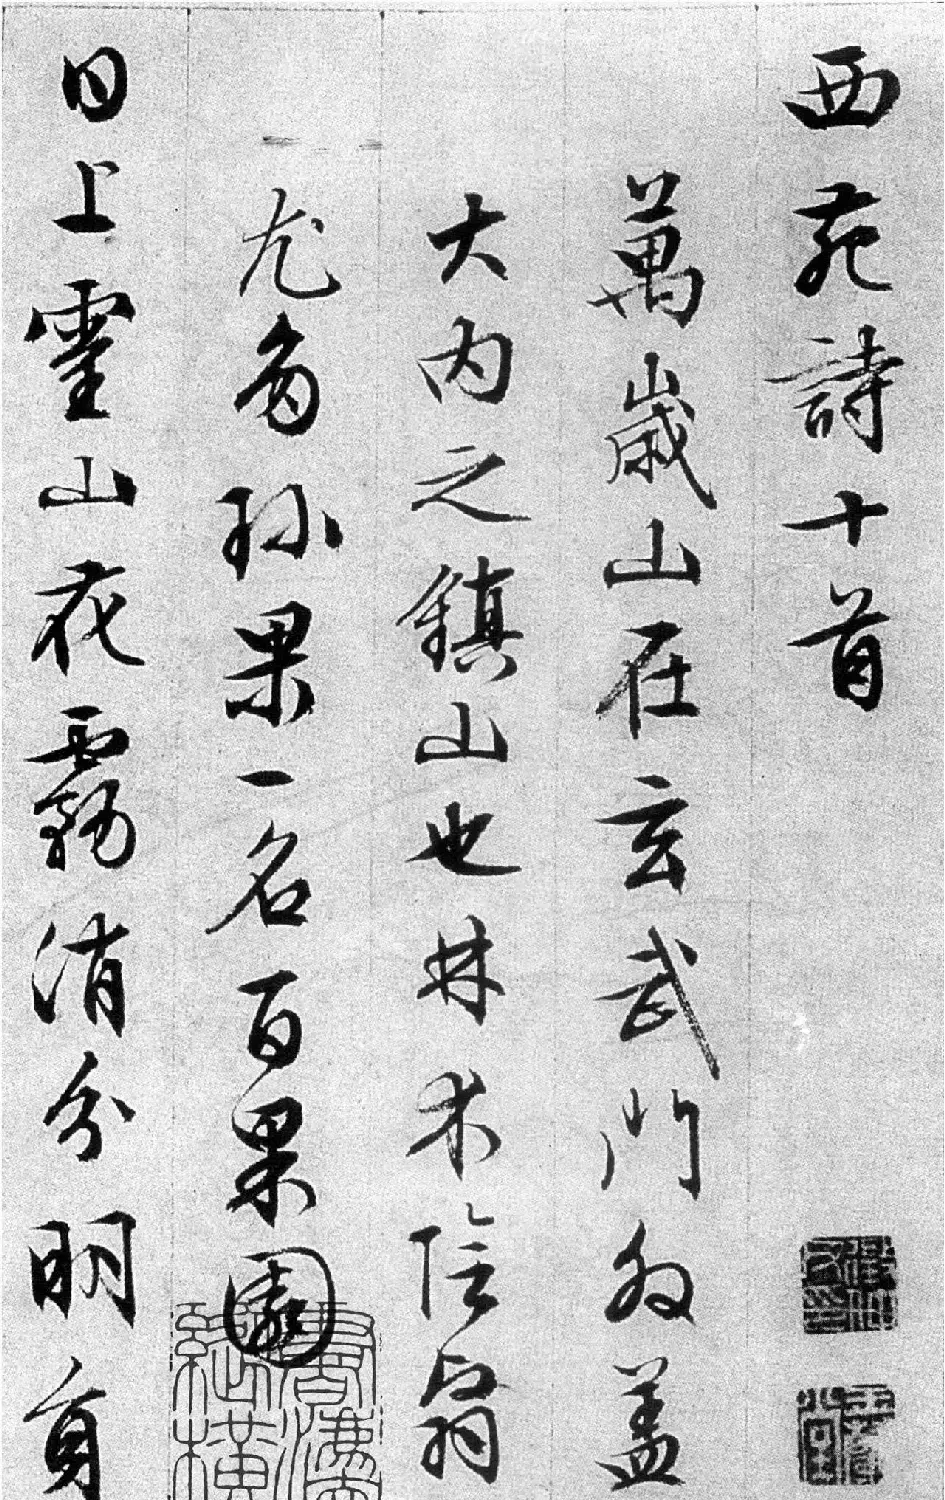 西苑詩十首
萬歲山在玄武門外蓋
大內之鎮山也林木陰翳
尤多珍果一名百果園
日上靈山花霧消分明員